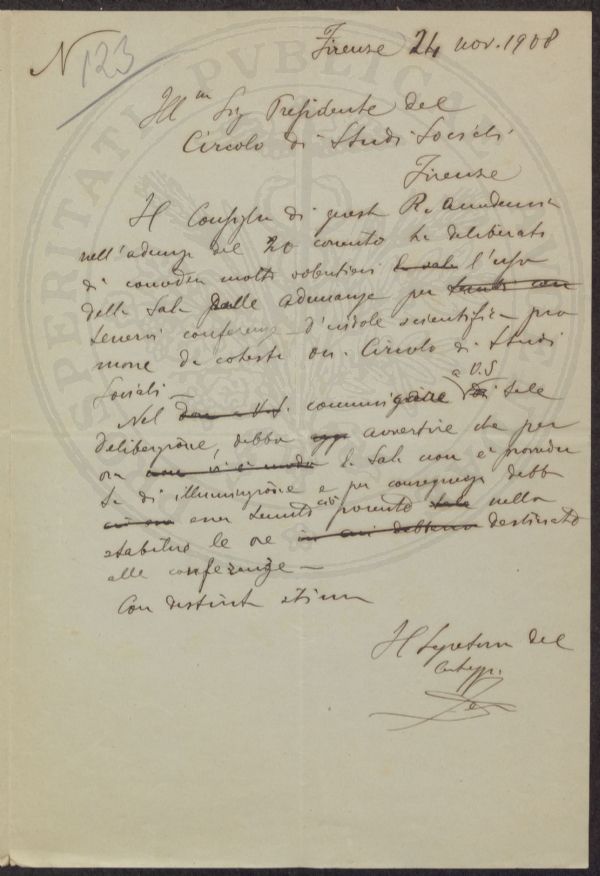 N 123
Firenze 24 nov. 1908
Ill^m Sig Presidente del
Circolo di Studi Sociali
Firenze
Il Consiglio di questa R. Accademia
nell'adunza del 20 corrente ha deliberato
di conceder molto volentieri la sala l'uso
della Sala delle adunanze per
tenervi conferenze d'indole scientifica pro
mosse da cotesto on. Circolo di Studi
Sociali —
a V.S
Nel communicare di tale
deliberazione, debbo avvertire che per
ora la Sala non è provvedu
ta di illuminazione e per conseguenza debb
esser tenuto ciò presente nello
stabilire le ore destinate
alle conferenze —
Con distinta stima
Il Segretario del